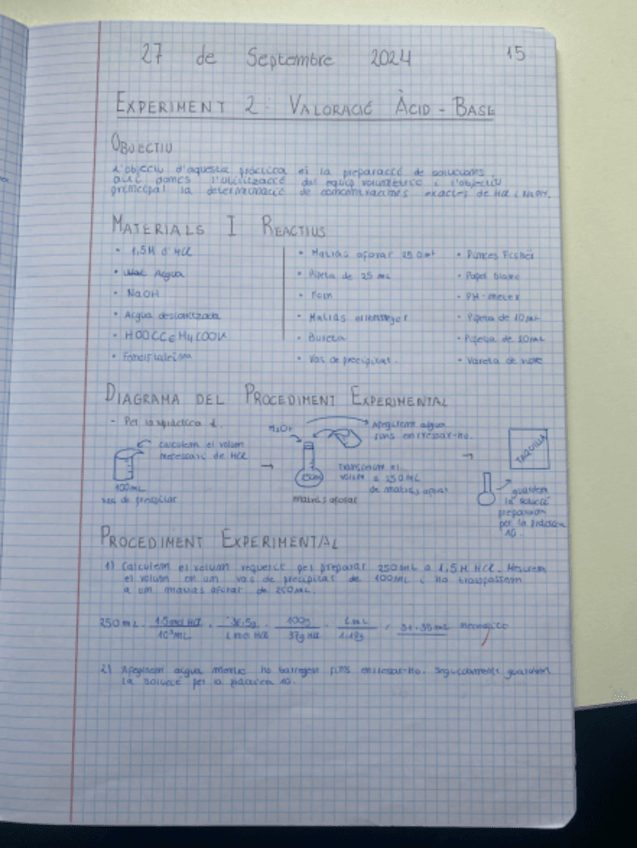 27 de Septembre 2024 15
EXPERIMENT 2: VALORACIÓ ÀCID - BASE
OBJECTIU
L'objectiu d'aquesta pràctica és la preparació de solucions,
així doncs l'utilització del equip volumètric i l'objectiu
principal la determinació de concentracions exactes de HCl i NaOH.
MATERIALS I REACTIUS
• 1,5M d'HCl
• Aigua
• NaOH
• Aigua desionitzada
• HOOCC6H4COOK
• Fenolftaleïna
• Matràs aforar 250ml
• Pipeta de 25 mL
• Forn
• Matràs erlenmeyer
• Bureta
• Vas de precipitat.
• Pinces Fisher
• Paper blanc
• PH-meter
• Pipeta de 10mL
• Pipeta de 20mL
• Vareta de vidre
DIAGRAMA DEL PROCEDIMENT EXPERIMENTAL
- Per la pràctica 1.
calculem el volum
necessari de HCl
100mL
vas de precipitar
→
H2O
250ml
matràs aforar
Afegim aigua
fins enrasar-ho.
transvasem el
volum a 250mL
de matràs aforat
→
TAQUILLA
guardem
la solució
preparada
per la pràctica
10.
PROCEDIMENT EXPERIMENTAL
1) Calculem el volum requerit per preparar 250mL a 1,5M HCl. Mesurem
el volum en un vas de precipitat de 100mL i ho traspassem
a un matràs aforar de 250mL.
250mL · 1.5mol HCl / 10³mL · 36,5g / 1 mol HCl · 100g / 37g HCl · 1mL / 1.19g
2) Afegim aigua mentre ho barregem fins enrasar-ho. Seguidament guardem
la solució per la pràctica 10.